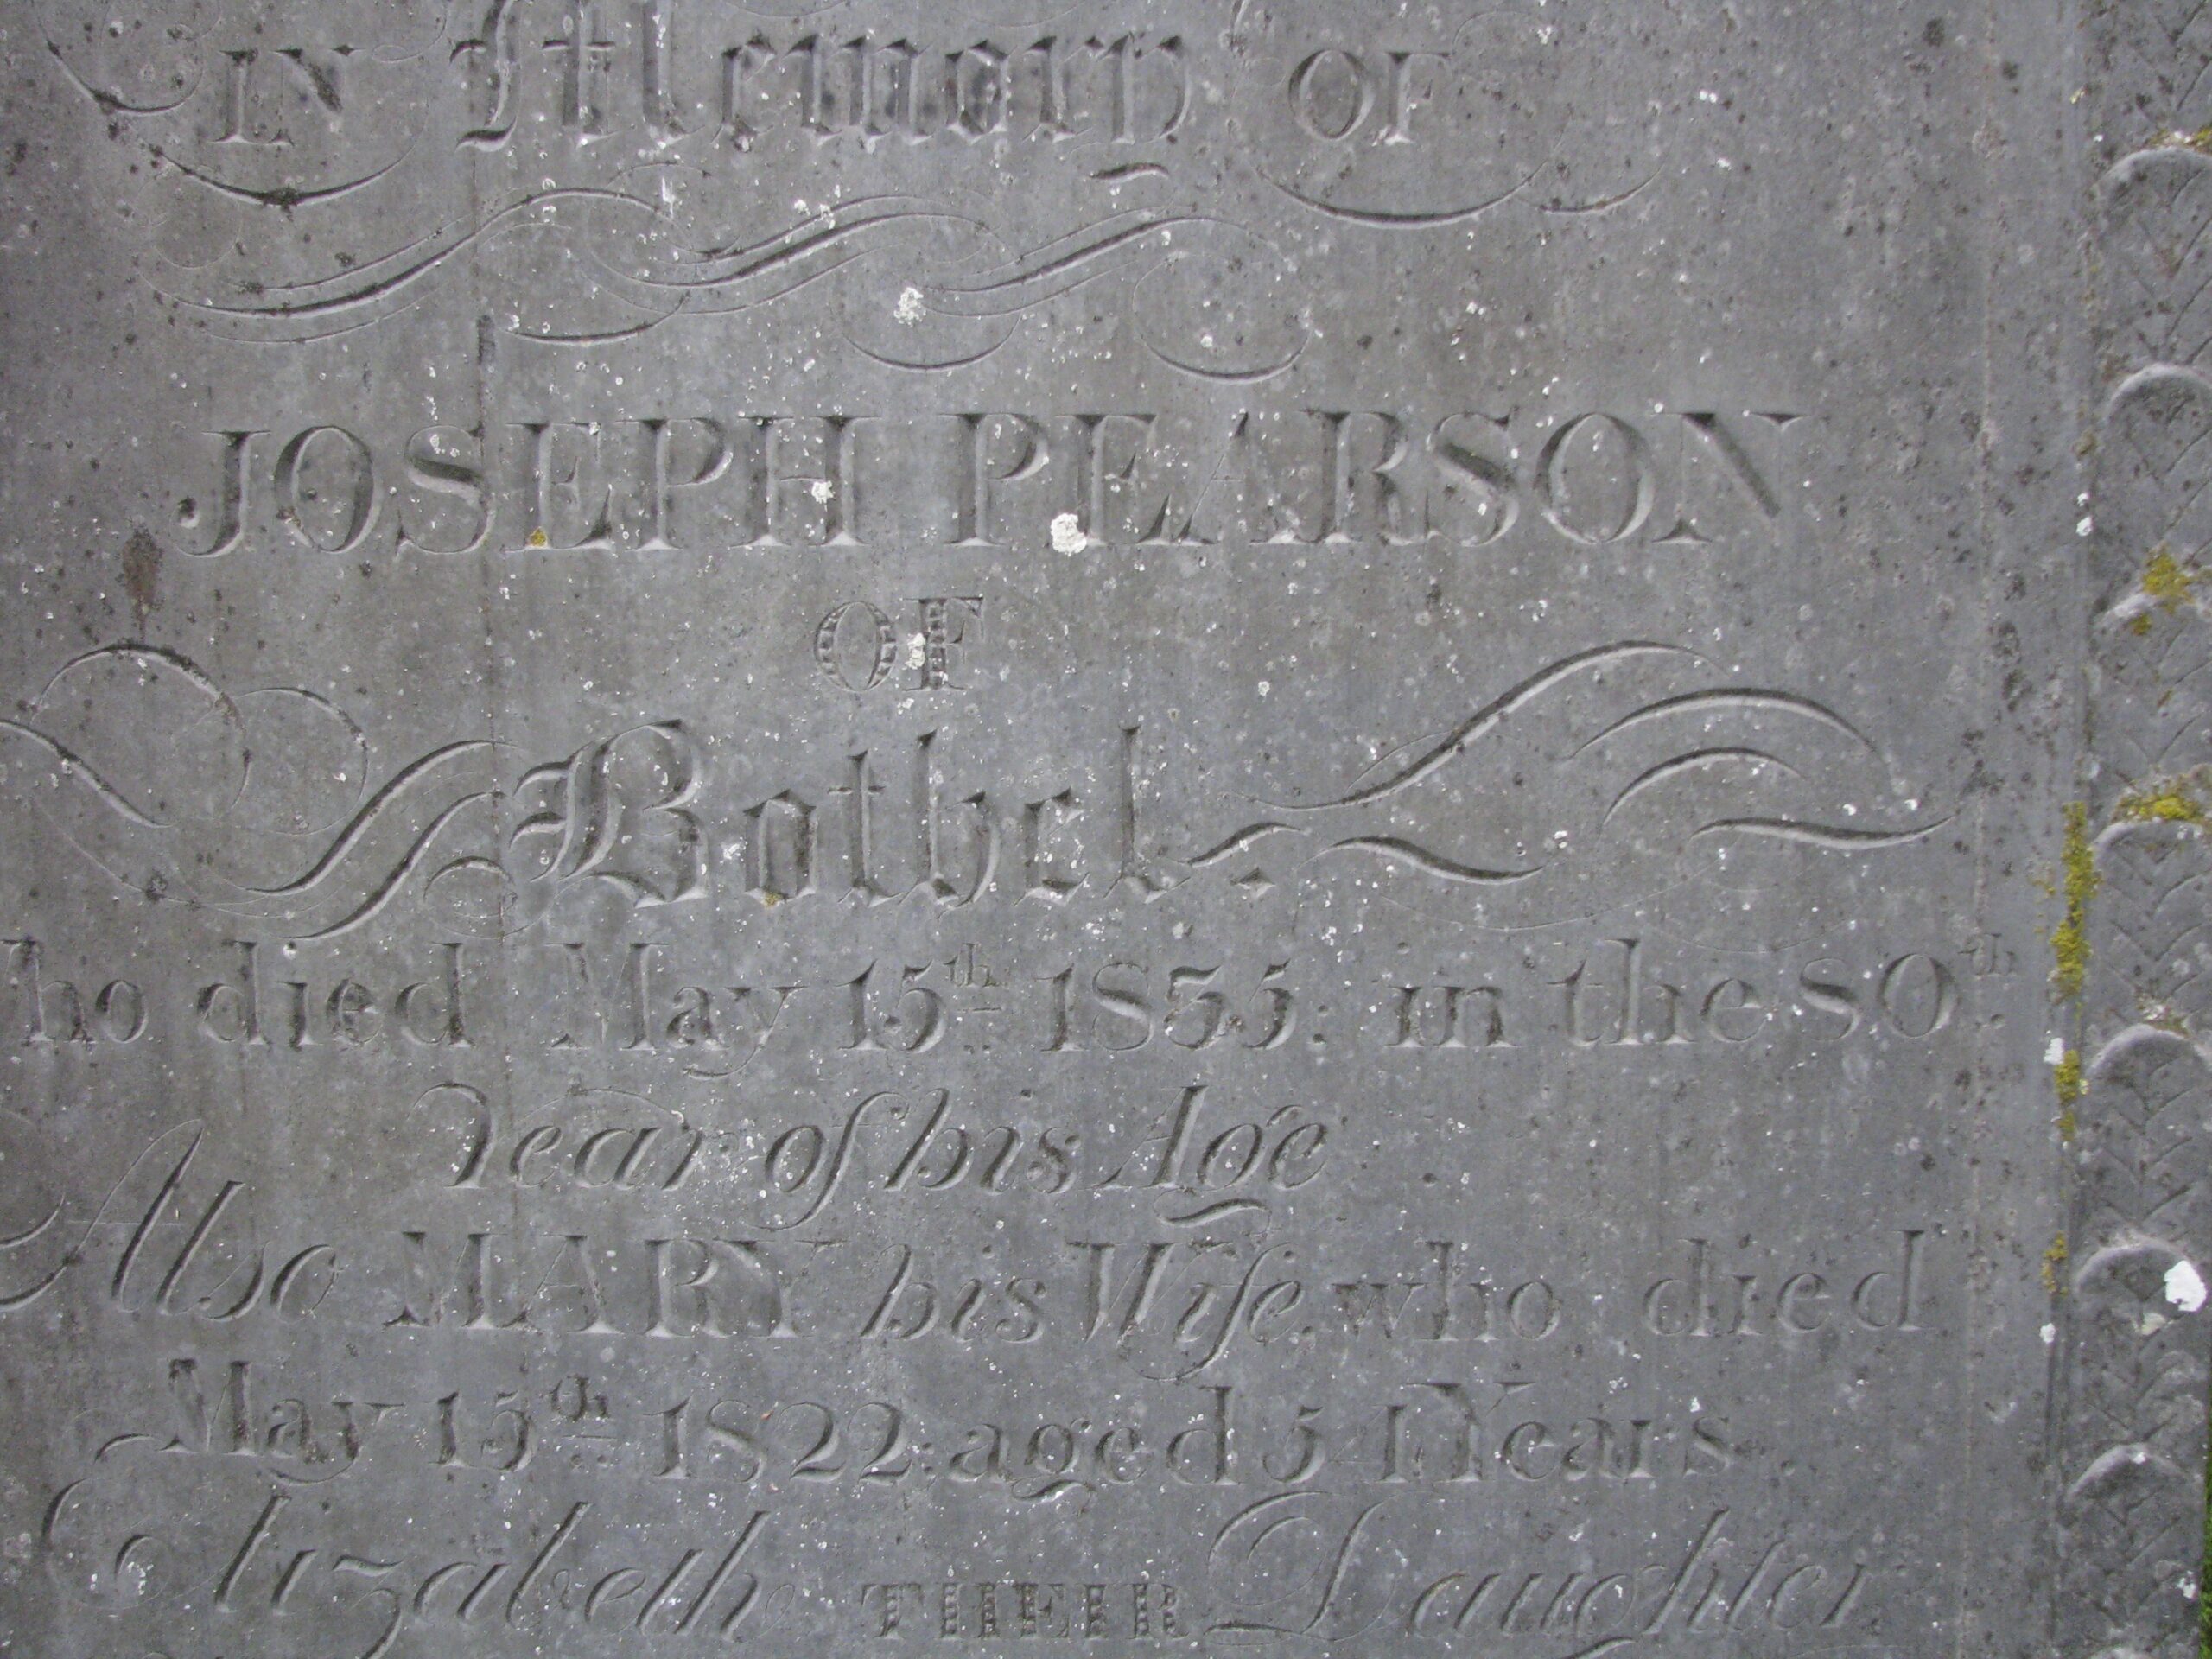 IN Memory OF
JOSEPH PEARSON
OF
Bothel.
ho died May 15th 1835: in the 80th
Year of his Age
Also MARY his Wife who died
May 15th 1822: aged 54 Years.
Elizabeth THEIR Daughter